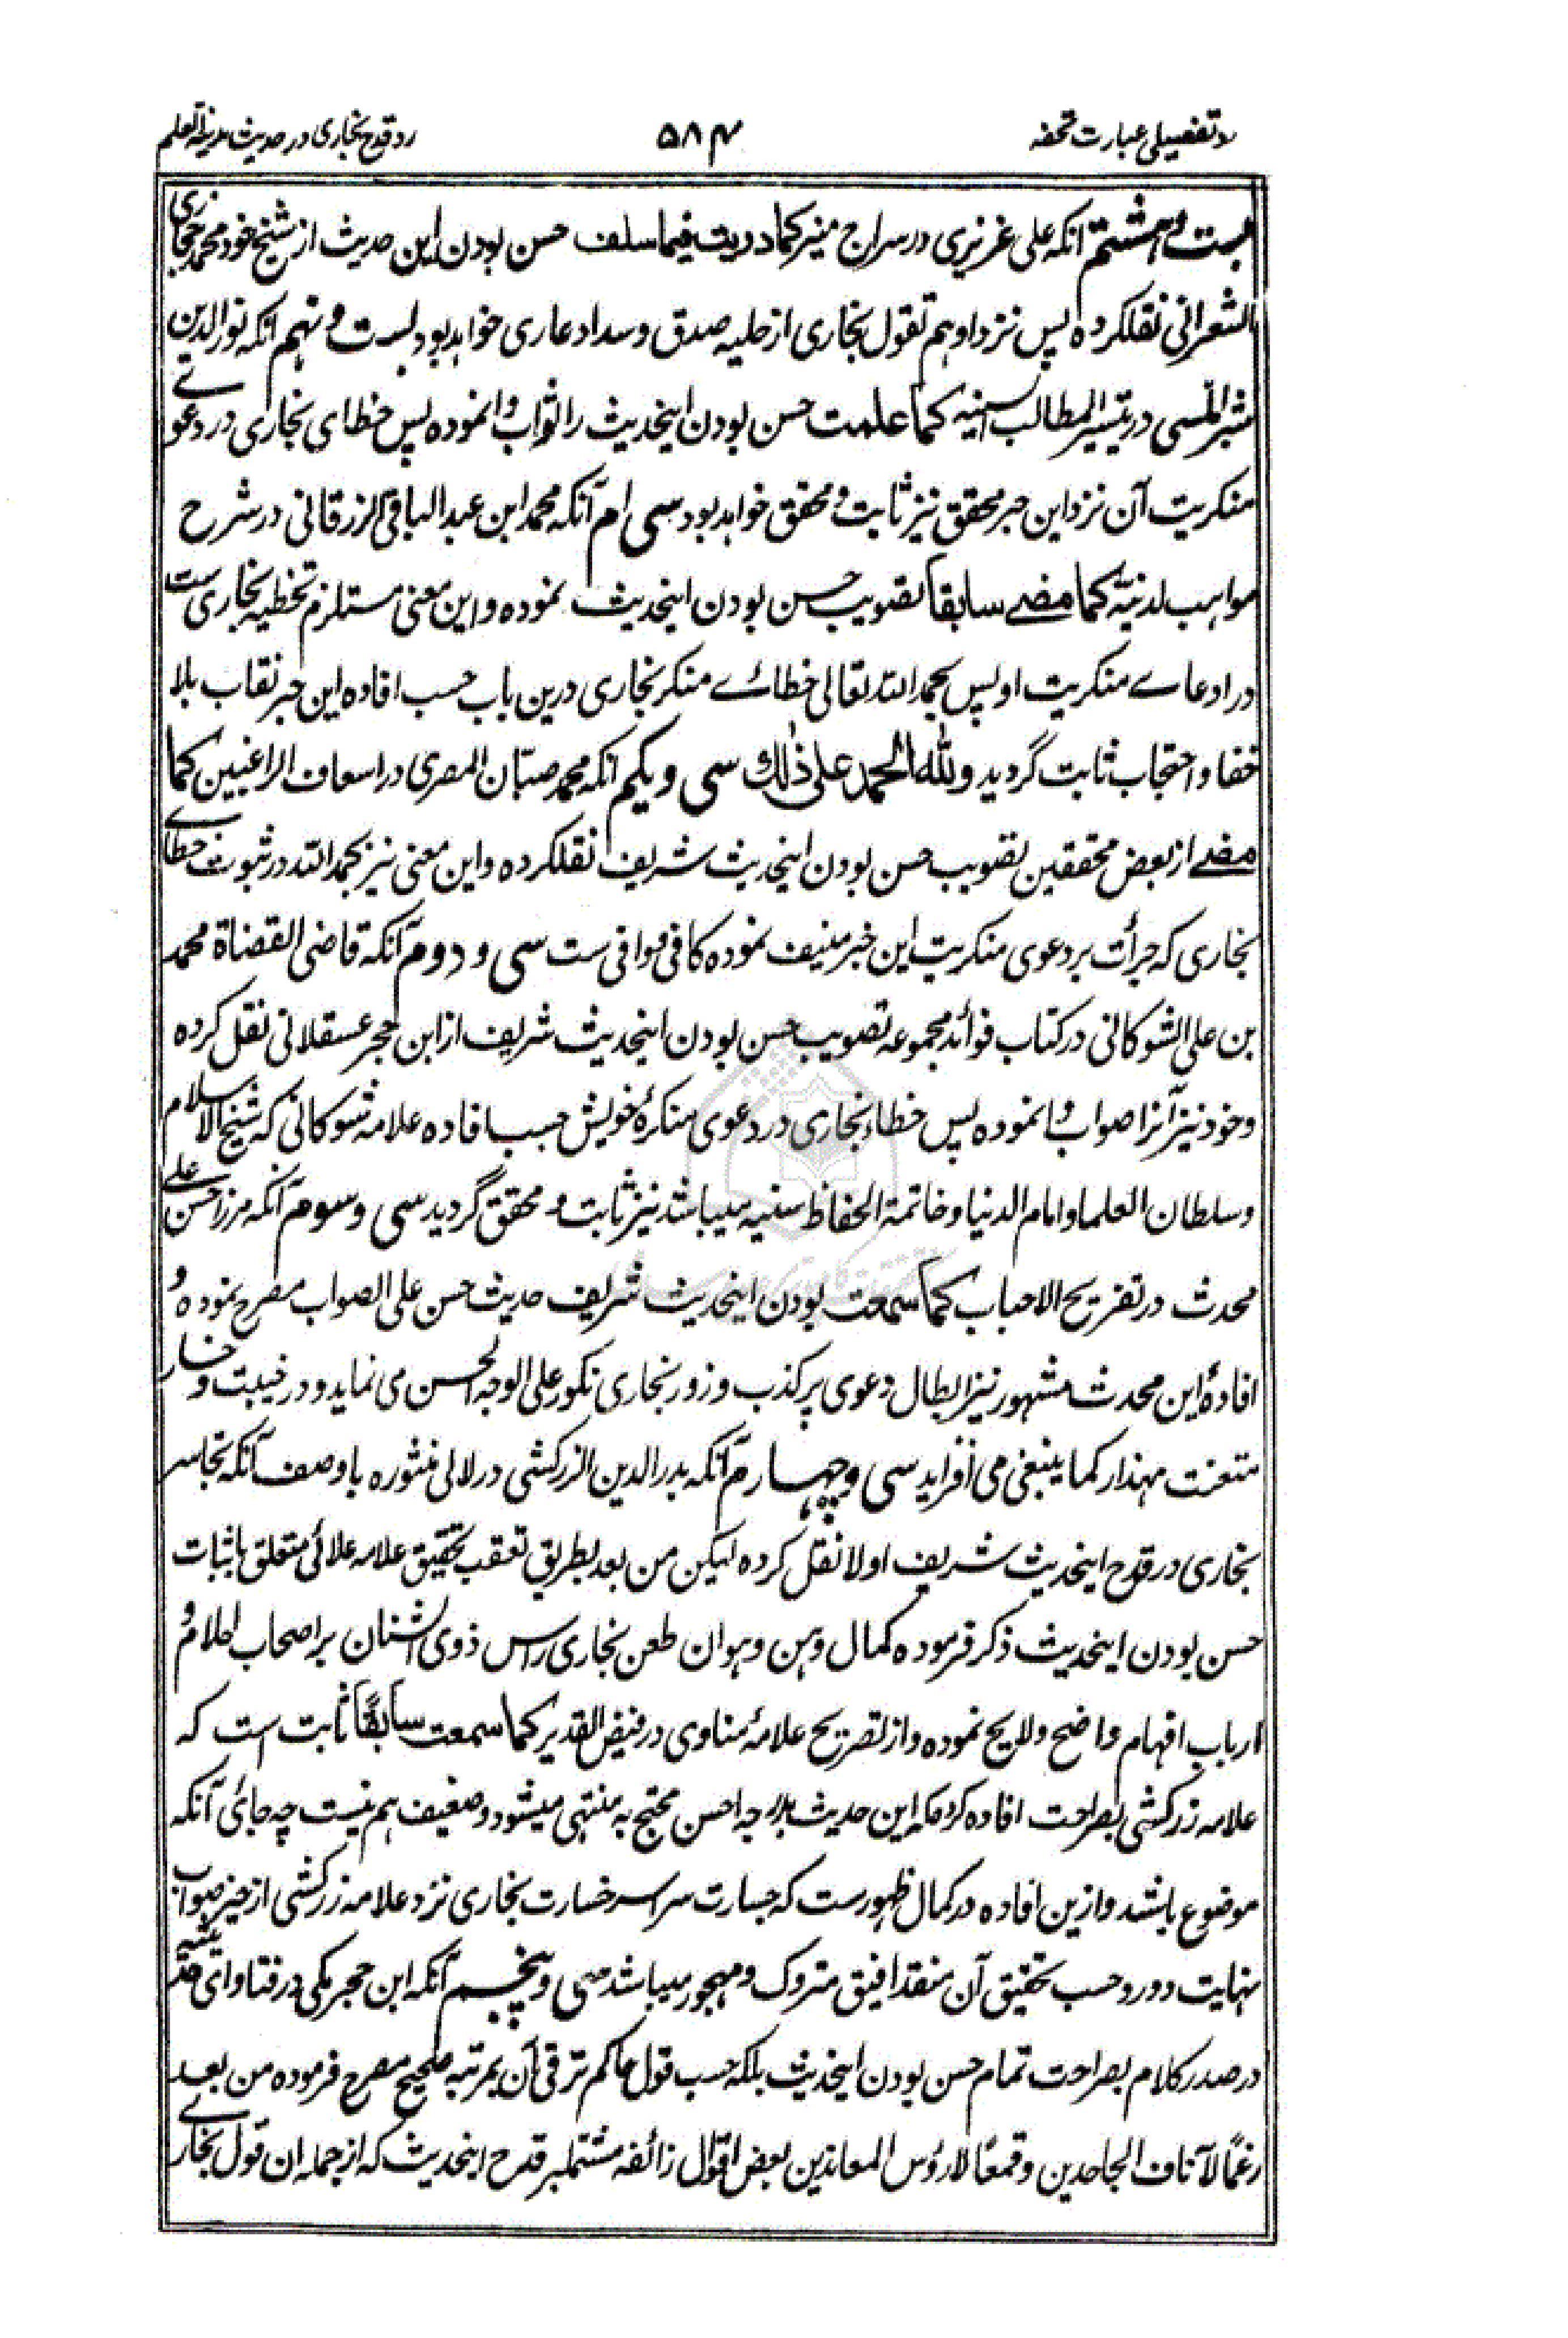 رد تفصیلی عبارت تحفه
۵۸۴
رد قدح بخاری در حدیث مدینة العلم
بست و هشتم آنکه علی عزیزی در سراج منیر کما دریت فیما سلف حسن بودن این حدیث از شیخ خود محمد حجازی
الشعرانی نقلکرده پس نزد او هم تقول بخاری از حلیه صدق و سداد عاری خواهد بود بست و نهم آنکه نور الدین
شبراملسی در تیسیر المطالب السنیه کما علمت حسن بودن اینحدیث را ثواب وانموده پس خطای بخاری در دعوتے
منکریت آن نزد این حبر محقق نیز ثابت و محقق خواهد بود سی ام آنکه محمد ابن عبد الباقی الزرقانی در شرح
مواهب لدنیّه کما مضے سابقا تصویب حسن بودن اینحدیث نموده و این معنی مستلزم تخطیه بخاری ست
در ادعاے منکریت او پس بحمد الله تعالی خطائے منکر بخاری درین باب حسب افاده این حبر نقاب بلا
خفا و احتجاب ثابت گردید ولله الحمد علی ذلك سی و یکم آنکه محمد صبّان المصری در اسعاف الراغبین کما
مضے از بعض محققین تصویب حسن بودن اینحدیث شریف نقلکرده و این معنی نیز بحمد الله در ثبوت خطاے
بخاری که جرأت بر دعوی منکریت این خبر منیف نموده کافی و وافی ست سی و دوم آنکه قاضی القضاة محمد
بن علی الشوکانی در کتاب فوائد مجموعه تصویب حسن بودن اینحدیث شریف از ابن حجر عسقلانی نقل کرده
و خود نیز آنرا صواب وانموده پس خطاء بخاری در دعوی منکرهٔ خویش حسب افاده علامه شوکانی که شیخ الاسلام
و سلطان العلما و امام الدنیا و خاتمة الحفاظ سنیه میباشد نیز ثابت و محقق گردید سی و سوم آنکه مرزا حسن علے
محدث در تفریح الاحباب کما سمعت بودن اینحدیث شریف حدیث حسن علی الصواب مصرح نموده و
افادهٔ این محدث مشهور نیز ابطال دعوی پر کذب و زور بخاری نکور علی الوجه الحسن می نماید و در خیبت و خسار
متعنت مهذار کما ینبغی می افزاید سی و چهارم آنکه بدر الدین الزرکشی در لالی منثوره با وصف آنکه تجاسر
بخاری در قدح اینحدیث شریف اولا نقل کرده لیکن من بعد بطریق تعقب تحقیق علامه علائی متعلق باثبات
حسن بودن اینحدیث ذکر فرموده کمال وهن و هوان طعن بخاری راس ذوی الشنان بر اصحاب احلام و
ارباب افهام واضح و لایح نموده و از تصریح علامهٔ مناوی در فیض القدیر کما سمعت سابقًا ثابت است که
علامه زرکشی بصراحت افاده کرده که این حدیث بدرجه احسن محتج به منتهی میشود و ضعیف هم نیست چه جائی آنکه
موضوع باشد و ازین افاده در کمال ظهورست که جسارت سراسر خسارت بخاری نزد علامه زرکشی از حیز صواب
بنهایت دور و حسب تحقیق آن منقد افیق متروک و مهجور میباشد سی و پنجم آنکه ابن حجر مکی در فتاوای حدیثیه
در صدر کلام بصراحت تمام حسن بودن اینحدیث بلکه حسب قول حاکم ترقی آن بمرتبه صحیح مصرح فرموده من بعد
رغمًا لآناف الجاحدین و قمعًا لارؤس المعاندین بعض اقوال زائفه مشتملبر قدح اینحدیث که از جمله ان قول بخارے